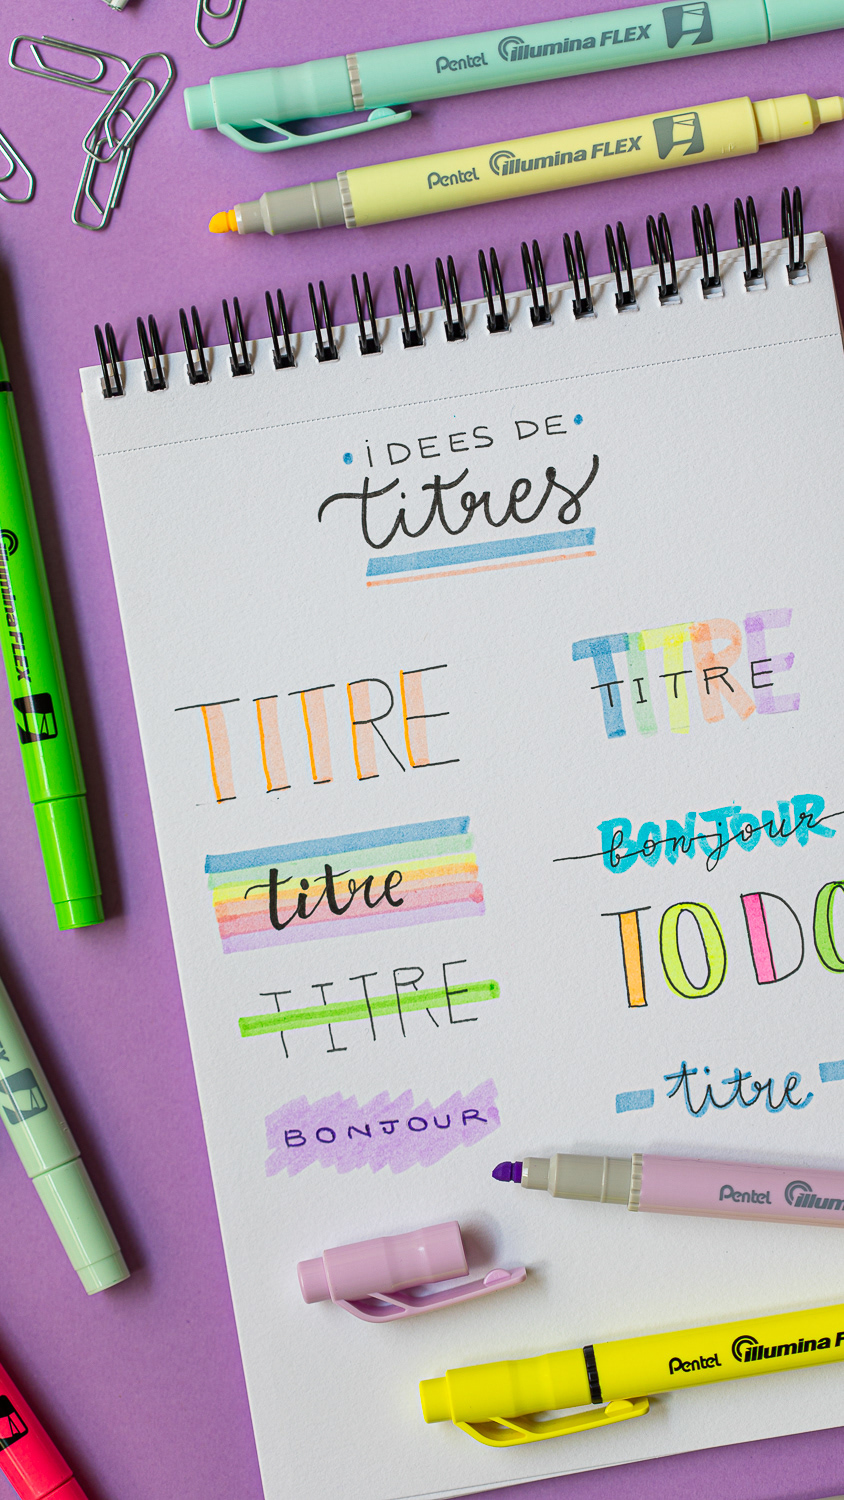 Pentel illumina FLEX
Pentel illumina FLEX
IDEES DE
titres
TITRE
TITRE
BONJOUR
bonjour
titre
TO DO
TITRE
titre
BONJOUR
Pentel
Pentel illumina
illumina FLEX